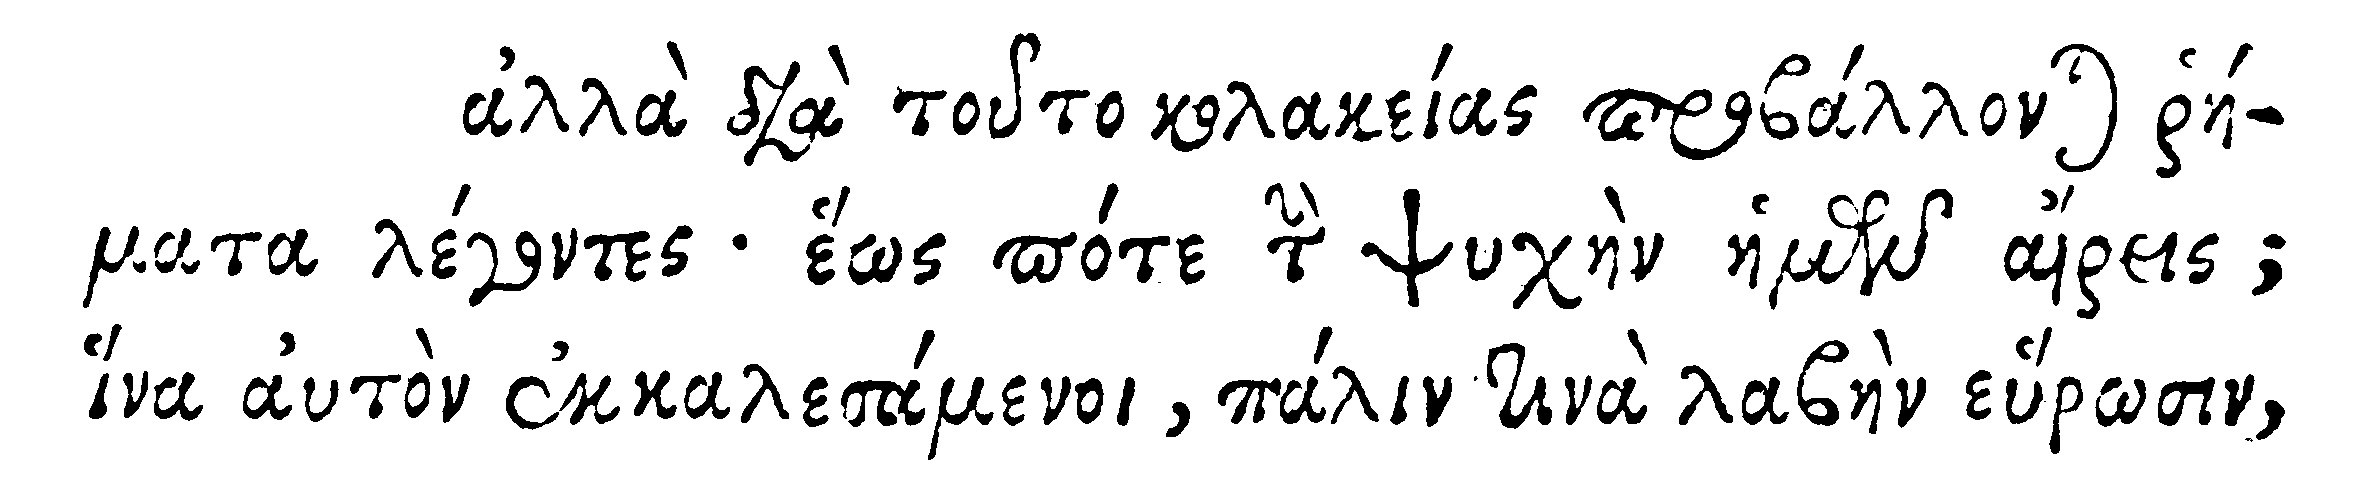 ἀλλὰ διὰ τοῦτο κολακείας προβάλλονται ῥή-
ματα λέγοντες· ἕως πότε τὴν ψυχὴν ἡμῶν αἴρεις;
ἵνα αὐτὸν ἐκκαλεσάμενοι, πάλιν τινὰ λαβὴν εὕρωσιν,